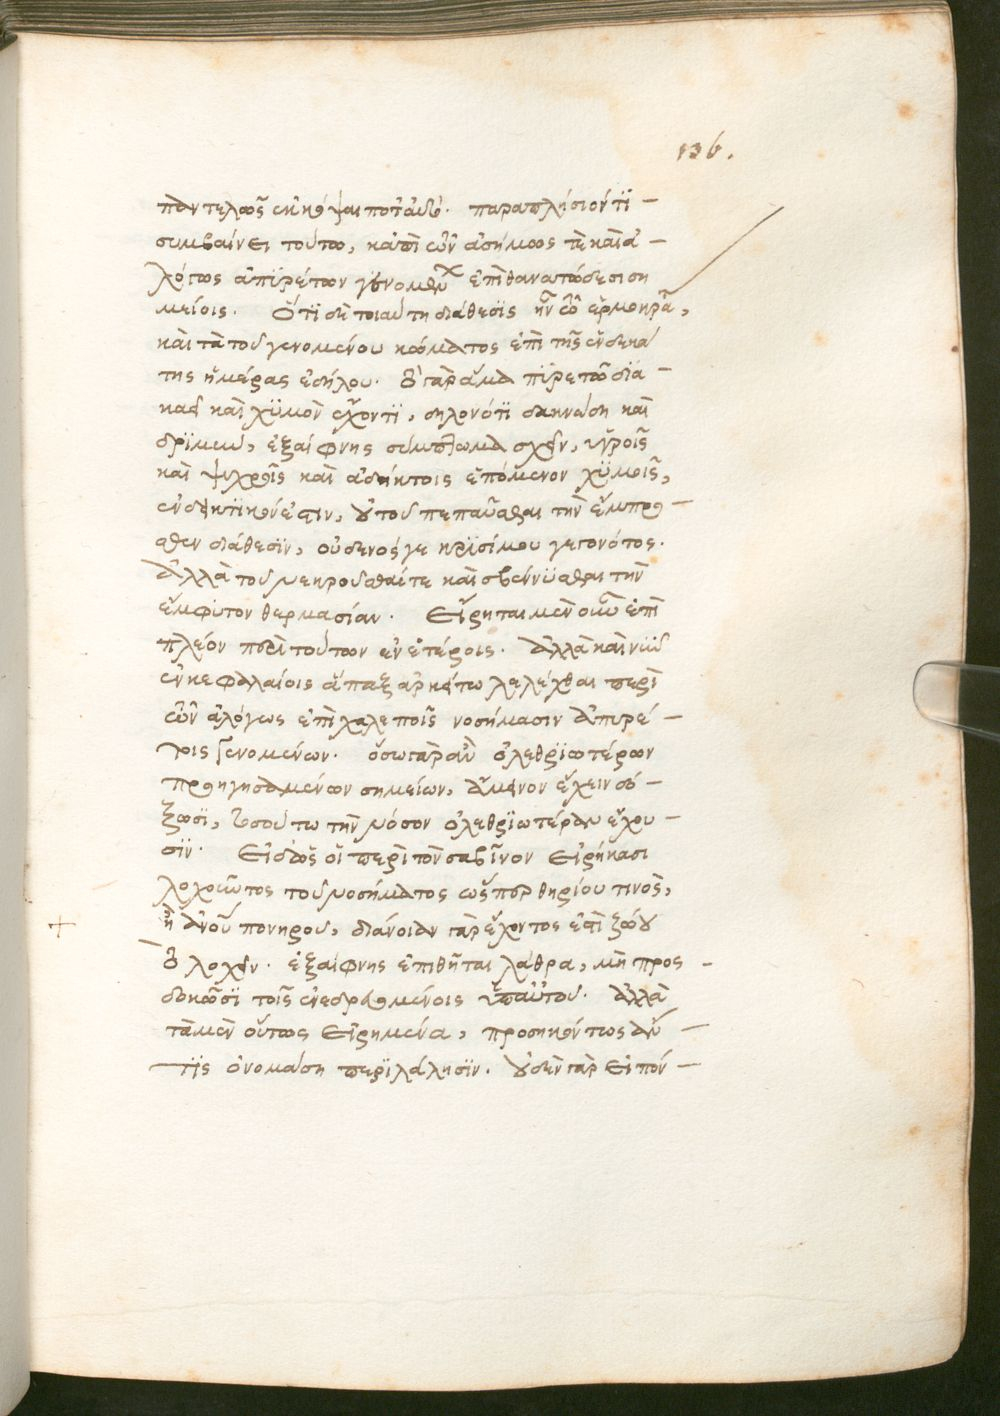 136.
παντελῶς ἐκκόψαι ποτ' αὐτό. παραπλήσιόν τι
συμβαίνει τούτω, κἀπὶ τῶν ἀσήμως τὲ καὶ ἀ
λόγως ἀπυρέτων γενομένων ἐπὶ θανατώδεσι ση
μείοις. Ὅτι δὲ τοιαύτη διάθεσις ἦν τῶ ἑρμοκράτει,
καὶ τὰ τοῦ γενομένου κώματος ἐπὶ τῆς ἑνδεκά
της ἡμέρας ἐδήλου. Ὁ γὰρ ἅμα πυρετῶ δια
καεῖ καὶ χυμὸν ἔχοντι, δηλονότι δακνώδη καὶ
δριμὺν, ἐξαίφνης σύμπτωμα σχεῖν, ὑγροῖς
καὶ ψυχροῖς καὶ ἀδήκτοις ἑπόμενον χυμοῖς,
ἐνδεικτικόν ἐστιν, οὐ τοῦ πεπαῦσθαι τὴν ἔμπρο
σθεν διάθεσιν, οὐδενός γε κρισίμου γεγονότος.
Ἀλλὰ τοῦ νεκροῦσθαί τε καὶ σβέννυσθαι τὴν
ἔμφυτον θερμασίαν. Εἴρηται μὲν οὖν ἐπὶ
πλέον περὶ τούτων ἐν ἑτέροις. Ἀλλὰ καὶ νῦν
ἐν κεφαλαίοις ἅπαξ ἀρκείτω λελέχθαι περὶ
τῶν ἀλόγως ἐπὶ χαλεποῖς νοσήμασιν ἀπυρέ
τοις γενομένων. ὅσω γὰρ ἂν ὀλεθριωτέρων
προηγησαμένων σημείων, ἄμεινον ἔχειν δό
ξωσι, τοσούτω τὴν νόσον ὀλεθριωτέραν ἔχου
σιν. Εἰσὶ δ' οἱ περὶ τὸν σαβῖνον εἰρήκασι
λοχῶντος τοῦ νοσήματος ὥσπερ θηρίου τινὸς,
ἢ ἀνοῦ πονηροῦ, διάνοιαν γὰρ ἔχοντος ἐστὶ ζώου
ὁ λοχᾶν. ἐξαίφνης ἐπιθῆται λάθρα, μὴ προς
δοκῶσι τοῖς ἐνεδρευομένοις ὑπ' αὐτοῦ. Ἀλλὰ
τὰ μὲν οὕτως εἰρημένα, προσηκόντως ἄν
τις ὀνομάση περιλάλησιν. οὐδὲν γὰρ εἰπόν